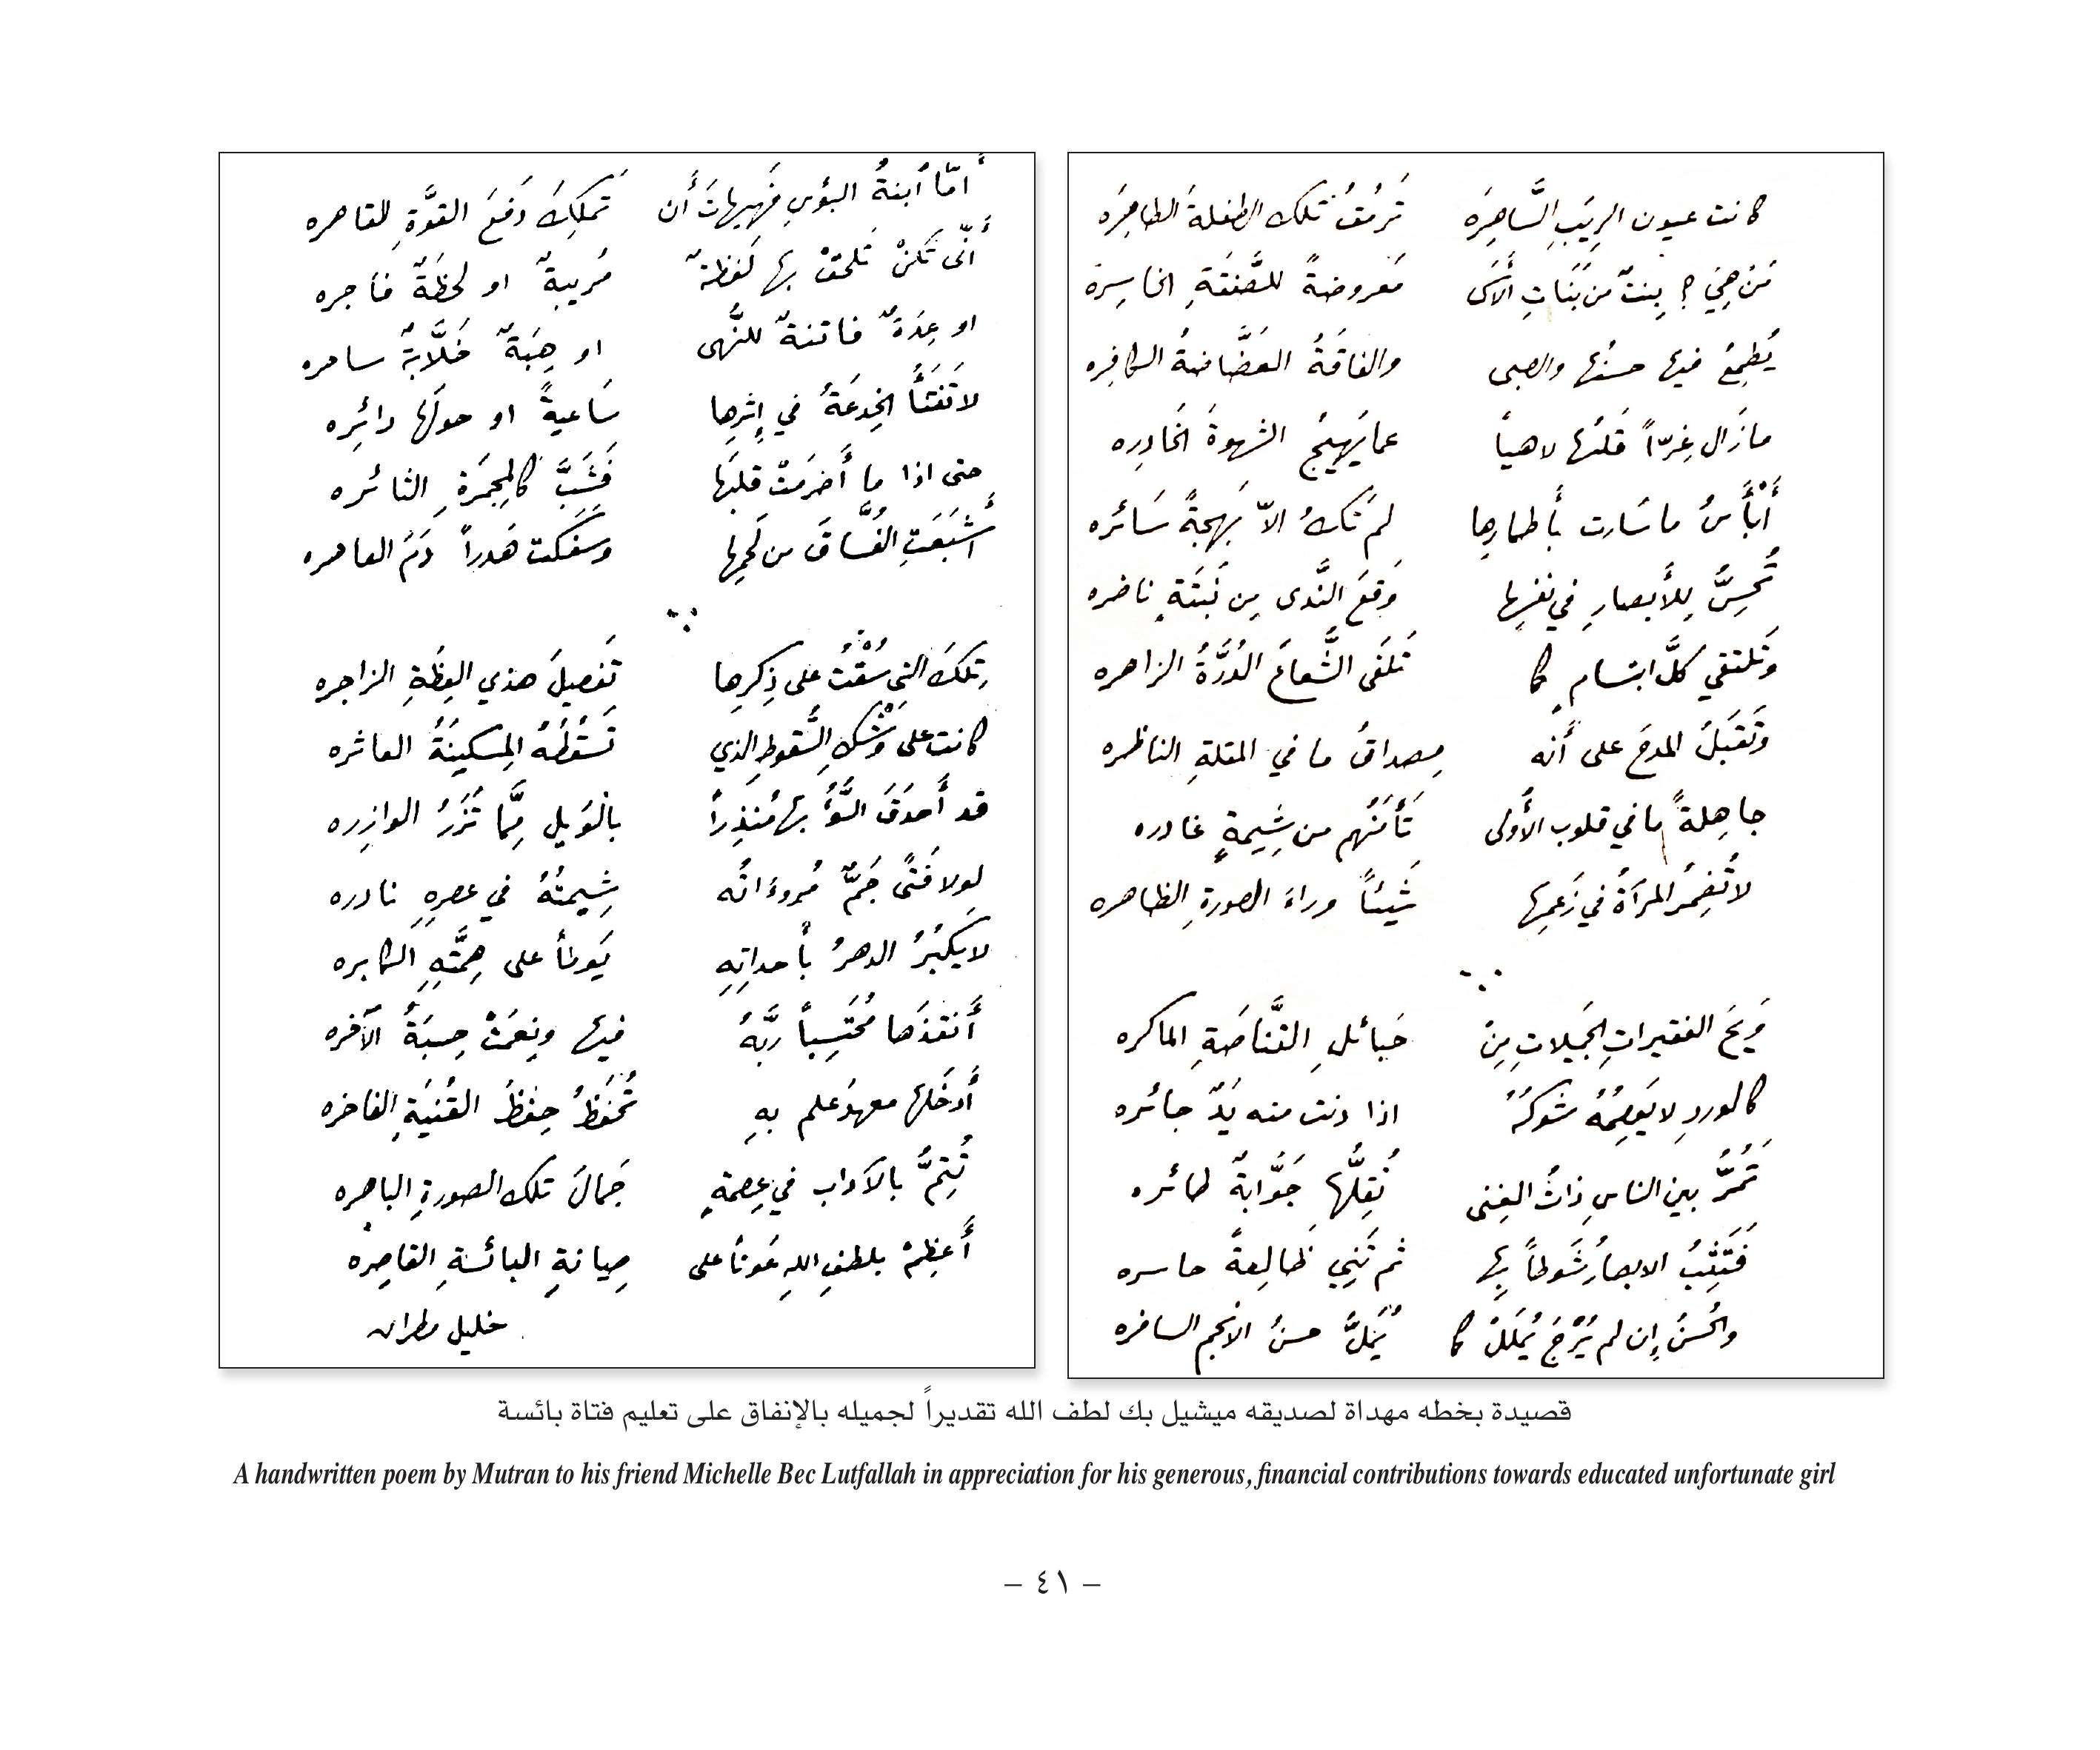 كانت عيون الرِيَبِ السَّاهِرَه تَرمُقُ تلك الطفلةَ الطاهِرَه
مَن هِيَ ؟ بِنتٌ من بَنَاتِ الأَسَى مَعروضةً للصَّفقَةِ الخاسِرَة
يُطمِعُ فيها حسنُها والصبى والفاقَةُ العَضَّاضةُ الكافِره
مازَال غِرّاً قَلبُها لاهياً عما يَهِيجُ الشهوةَ الخَادِره
أَبْأَسُ ما سَارت بأَطمارِها لم تَكُ الاّ بَهجةً سَائره
تُحِسُّ لِلأَبصارِ في نفسِها وَقعَ النَّدى مِن نَبتَةٍ ناضره
وَتلتقي كلَّ ابتسامٍ كما تَلقَى الشَّعاعَ الدُرَّةُ الزاهره
وَتَقبَلُ المدحَ على أَنه مِصداقُ ما في المقلةِ الناظره
جاهِلةً ما في قلوب الأُولى تَأمَنُهم من شِيمةٍ غادره
لا تُضمِرُ المرآةُ في زَعمِها شَيئاً وراءَ الصورةِ الظاهره
وَيحَ الفقيراتِ الجَميلاتِ مِنْ حَبائلِ القنَّاصَةِ الماكره
كالوردِ لا يَعصِمُهُ شَوكُهُ اذا دنت منه يَدٌ جائره
تَمُرُّ بين الناسِ ذاتُ الغِنى تُقِلُّها جَوَّابةٌ طائره
فَتَثِبُ الابصارُ شَوطاً بِها ثم تَنِي ظَالِعةً حاسره
والحُسنُ إِن لم يُرْجَ يُملَلْ كما يُمَلُّ حسنُ الانجمِ السافره
أَمّا ابنةُ البؤسِ فَهَيهاتَ أَن تَملِكَ دَفعَ القوَّةِ القاهره
أَنّى تَكُنْ تَلحَقْ بها لَفظةٌ مُريبةٌ او لحظَةٌ فاجره
او عِدَةٌ فاتنةٌ للنُّهى او هِبَةٌ خَلَّابةٌ ساحره
لا تَفتَأُ الخِدعَةُ في إِثرِها سَاعيةً او حولَها دائِره
حتى اذا ما أَضرَمَتْ قلبَها فَشَبَّ كالمِجمَرَةِ الثائره
أَشبَعَتِ الفُسَّاقَ من لَحمِها وسَفَكت هَدراً دَمَ العاهره
تِلكَ التي سُقْتُ على ذِكرِها تَفصيلَ هذي العِظَةِ الزاجره
كانت على وَشْكِ السُّقوطِ الذي تَسقُطُهُ المِسكينَةُ العاثره
قد أَحدَقَ السُّوءُ بها مُنذِراً بالوَيلِ مِمَّا تُزَرُ الوازِره
لولا فَتًى جَمٌّ مُروءَاتُه شِيمتُهُ في عصرِهِ نادره
لا يَكبُرُ الدهرُ بأَحداثِهِ يَوماً على هِمَّتِهِ الكابره
أَنقذَها مُحتَسِباً رَبَّهُ فيها ونِعمَتْ حِسبَةُ الآخره
أَدخَلَها معهدَ علم بهِ تُحفَظُ حِفظَ القُنيَةِ الفاخره
تُتِمُّ بالآداب في عِصمةٍ جَمالَ تلك الصورةِ الباهره
أَعظِمْ بلطفِ اللهِ عَوناً على صِيانةِ البائسةِ القاصِره
خليل مطران
قصيدة بخطه مهداة لصديقه ميشيل بك لطف الله تقديراً لجميله بالإنفاق على تعليم فتاة بائسة
A handwritten poem by Mutran to his friend Michelle Bec Lutfallah in appreciation for his generous, financial contributions towards educated unfortunate girl
– ٤١ –